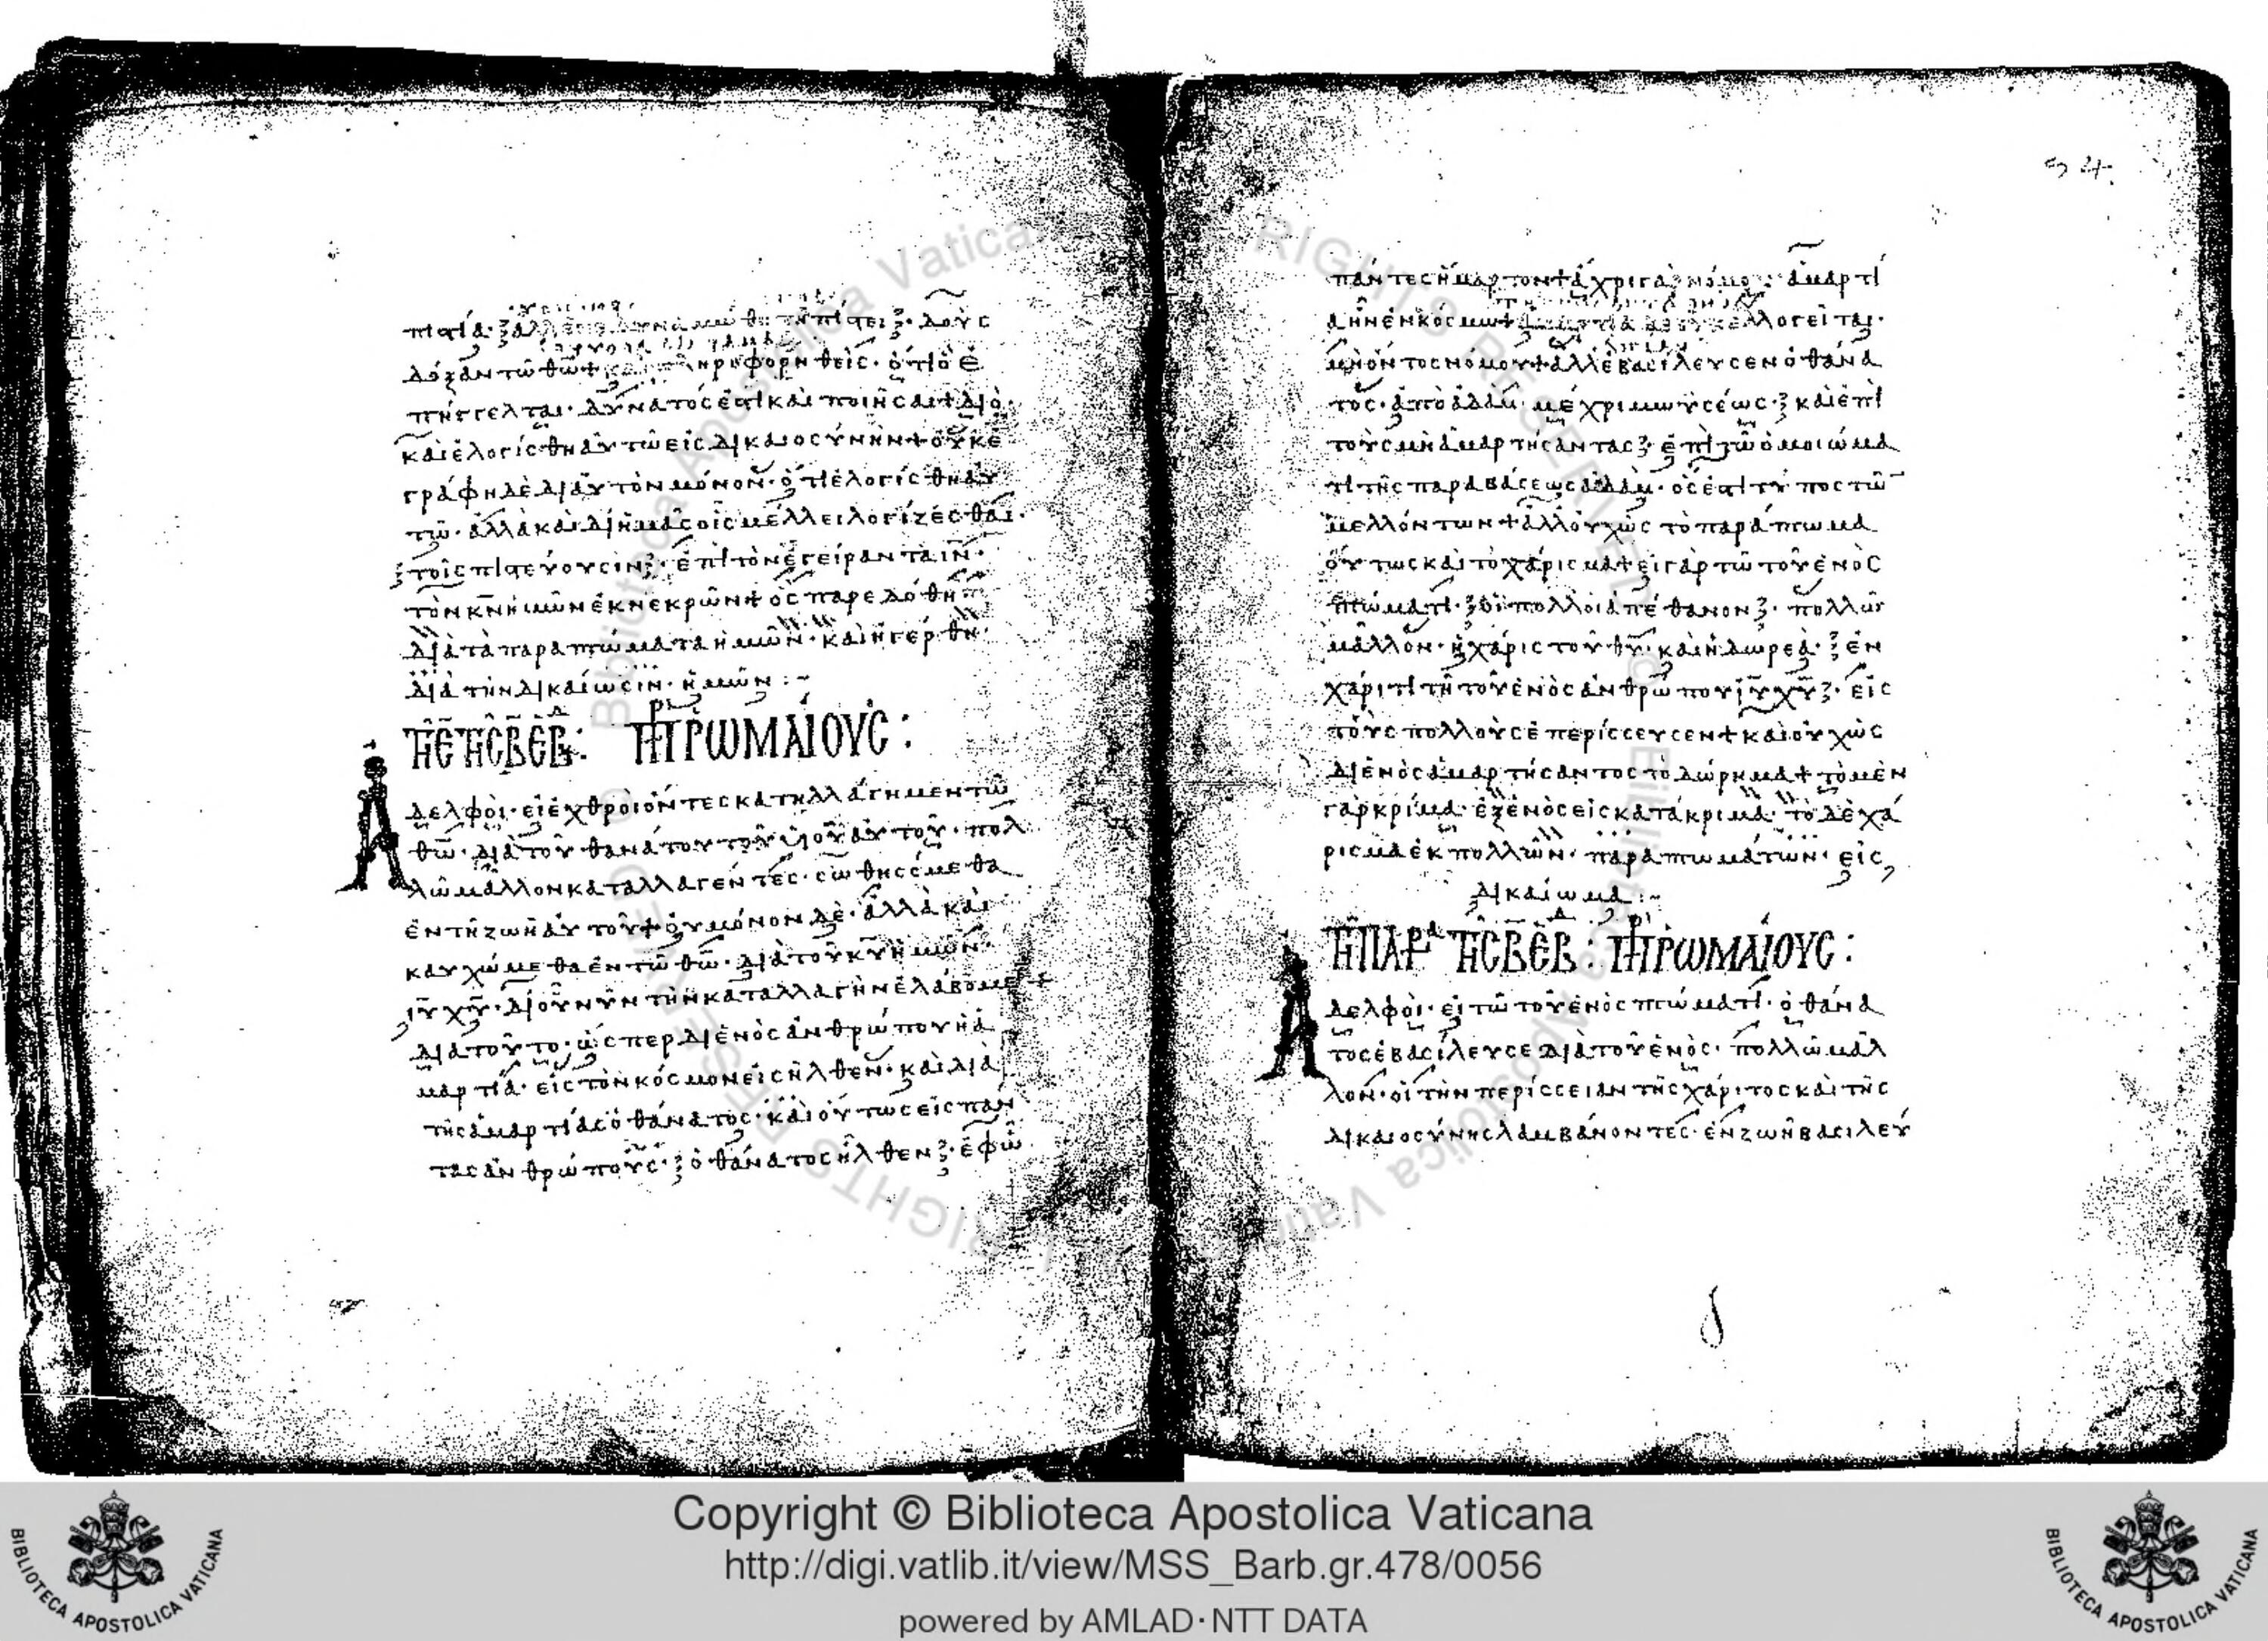 πιστία· ἀλλ δοὺς
δόξαν τῶ θω καὶ πληροφορηθεὶς· ὅτι ὃ ἐ
πήγγελται· δυνατός ἐστι καὶ ποιῆσαι + διὸ
καὶ ἐλογίσθη αὐτῶ εἰς δικαιοσύνην + οὐκ ἐ
γράφη δὲ δι αὐτὸν μόνον· ὅτι ἐλογίσθη αὐ
τῶ· ἀλλὰ καὶ δι ἡμᾶς οἷς μέλλει λογίζεσθαι·
τοῖς πιστεύουσιν· ἐπὶ τὸν ἐγείραντα ιν·
τὸν κν ἡμῶν ἐκ νεκρῶν + ὃς παρεδόθη
διὰ τὰ παραπτώματα ἡμῶν· καὶ ἠγέρθη·
διὰ τὴν δικαίωσιν· ἡμῶν :-
ΤΗ Ε ΤΗC Β ΕΒΔ : ΠΡ ΡΩΜΑΙΟΥC :
Αδελφοὶ· εἰ ἐχθροὶ ὄντες κατηλλάγημεν τῶ
θω· διὰ τοῦ θανάτου τοῦ υἱοῦ αὐτοῦ· πολ
λῶ μᾶλλον καταλλαγέντες· σωθησόμεθα
ἐν τῆ ζωῆ αὐτοῦ + οὐ μόνον δὲ· ἀλλὰ καὶ
καυχώμεθα ἐν τῶ θω· διὰ τοῦ κυ ἡμῶν·
ιυ χυ· δι οὗ νῦν τὴν καταλλαγὴν ἐλάβομε +
διὰ τοῦτο· ὥσπερ δι ἑνὸς ἀνθρώπου ἡ ἁ
μαρτία· εἰς τὸν κόσμον εἰσῆλθεν· καὶ διὰ
τῆς ἁμαρτίας ὁ θάνατος· καὶ οὕτως εἰς παν
τας ἀνθρώπους· ὁ θάνατος ἦλθεν· ἐφ ὧ
πάντες ἥμαρτον + ἄχρι γὰρ νόμου· ἁμαρτί
α ἦν ἐν κόσμω + ἁμαρτία δὲ οὐκ ἐλλογεῖται·
μὴ ὄντος νόμου + ἀλλ ἐβασίλευσεν ὁ θάνα
τος· ἀπὸ ἀδὰμ μέχρι μωυσέως· καὶ ἐπὶ
τοὺς μὴ ἁμαρτήσαντας· ἐπὶ τῶ ὁμοιώμα
τι τῆς παραβάσεως ἀδὰμ· ὅς ἐστι τύπος τῶν
μελλόντων + ἀλλ οὐχ ὡς τὸ παράπτωμα
οὕτως καὶ τὸ χάρισμα + εἰ γὰρ τῶ τοῦ ἑνὸς
πτώματι· οἱ πολλοὶ ἀπέθανον· πολλῶ
μᾶλλον· ἡ χάρις τοῦ θυ· καὶ ἡ δωρεὰ· ἐν
χάριτι τῆ τοῦ ἑνὸς ἀνθρώπου ιυ χυ· εἰς
τοὺς πολλοὺς ἐπερίσσευσεν + καὶ οὐχ ὡς
δι ἑνὸς ἁμαρτήσαντος τὸ δώρημα + τὸ μὲν
γὰρ κρίμα· ἐξ ἑνὸς εἰς κατάκριμα· τὸ δὲ χά
ρισμα ἐκ πολλῶν· παραπτωμάτων· εἰς
δικαίωμα :-
ΤΗ ΠΑΡ ΤΗC Β ΕΒΔ : ΠΡ ΡΩΜΑΙΟΥC :
Αδελφοὶ· εἰ τῶ τοῦ ἑνὸς πτώματι· ὁ θάνα
τος ἐβασίλευσε διὰ τοῦ ἑνὸς· πολλῶ μᾶλ
λον· οἱ τὴν περίσσειαν τῆς χάριτος καὶ τῆς
δικαιοσύνης λαμβάνοντες· ἐν ζωῆ βασιλεύ
Copyright © Biblioteca Apostolica Vaticana
http://digi.vatlib.it/view/MSS_Barb.gr.478/0056
powered by AMLAD·NTT DATA
BIBLIOTECA APOSTOLICA VATICANA
BIBLIOTECA APOSTOLICA VATICANA